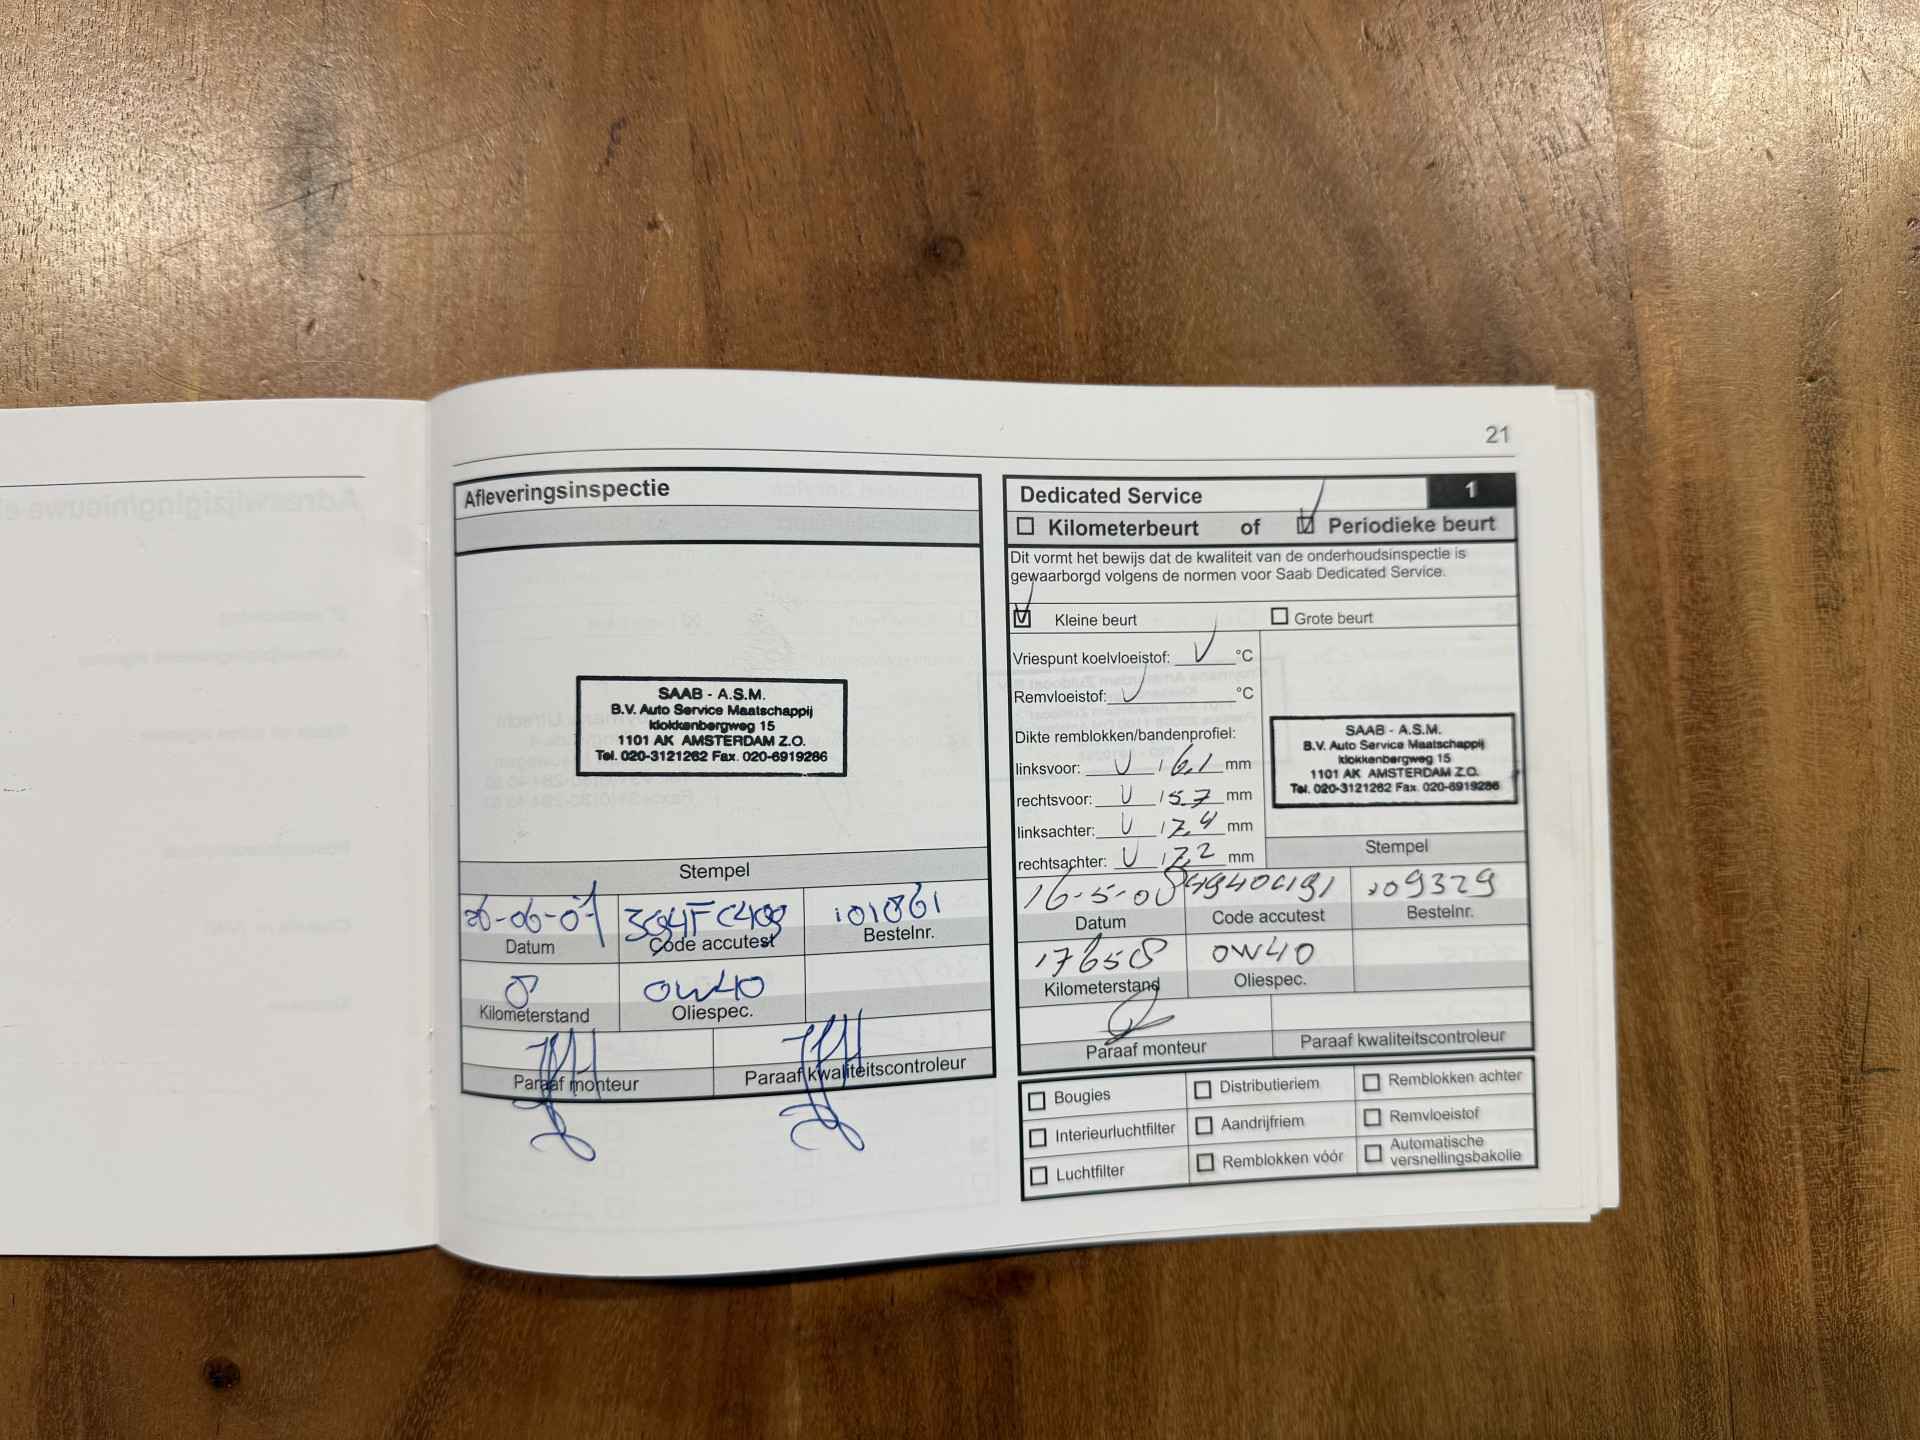 21
Afleveringsinspectie
SAAB - A.S.M.
B.V. Auto Service Maatschappij
klokkenbergweg 15
1101 AK AMSTERDAM Z.O.
Tel. 020-3121262 Fax. 020-6919286
Stempel
26-06-07 101861
Datum Code accutest Bestelnr.
0W40
Kilometerstand Oliespec.
Paraaf monteur Paraaf kwaliteitscontroleur
Dedicated Service 1
Kilometerbeurt of Periodieke beurt
Dit vormt het bewijs dat de kwaliteit van de onderhoudsinspectie is
gewaarborgd volgens de normen voor Saab Dedicated Service.
Kleine beurt Grote beurt
Vriespunt koelvloeistof: V °C
Remvloeistof: V °C
Dikte remblokken/bandenprofiel:
linksvoor: V / 6,1 mm
rechtsvoor: V / 5.7 mm
linksachter: V / 7,4 mm
rechtsachter: V / 7,2 mm
SAAB - A.S.M.
B.V. Auto Service Maatschappij
klokkenbergweg 15
1101 AK AMSTERDAM Z.O.
Tel. 020-3121262 Fax. 020-6919286
Stempel
16-5-08 109329
Datum Code accutest Bestelnr.
17658 0W40
Kilometerstand Oliespec.
Paraaf monteur Paraaf kwaliteitscontroleur
Bougies Distributieriem Remblokken achter
Interieurluchtfilter Aandrijfriem Remvloeistof
Luchtfilter Remblokken vóór Automatische
versnellingsbakolie